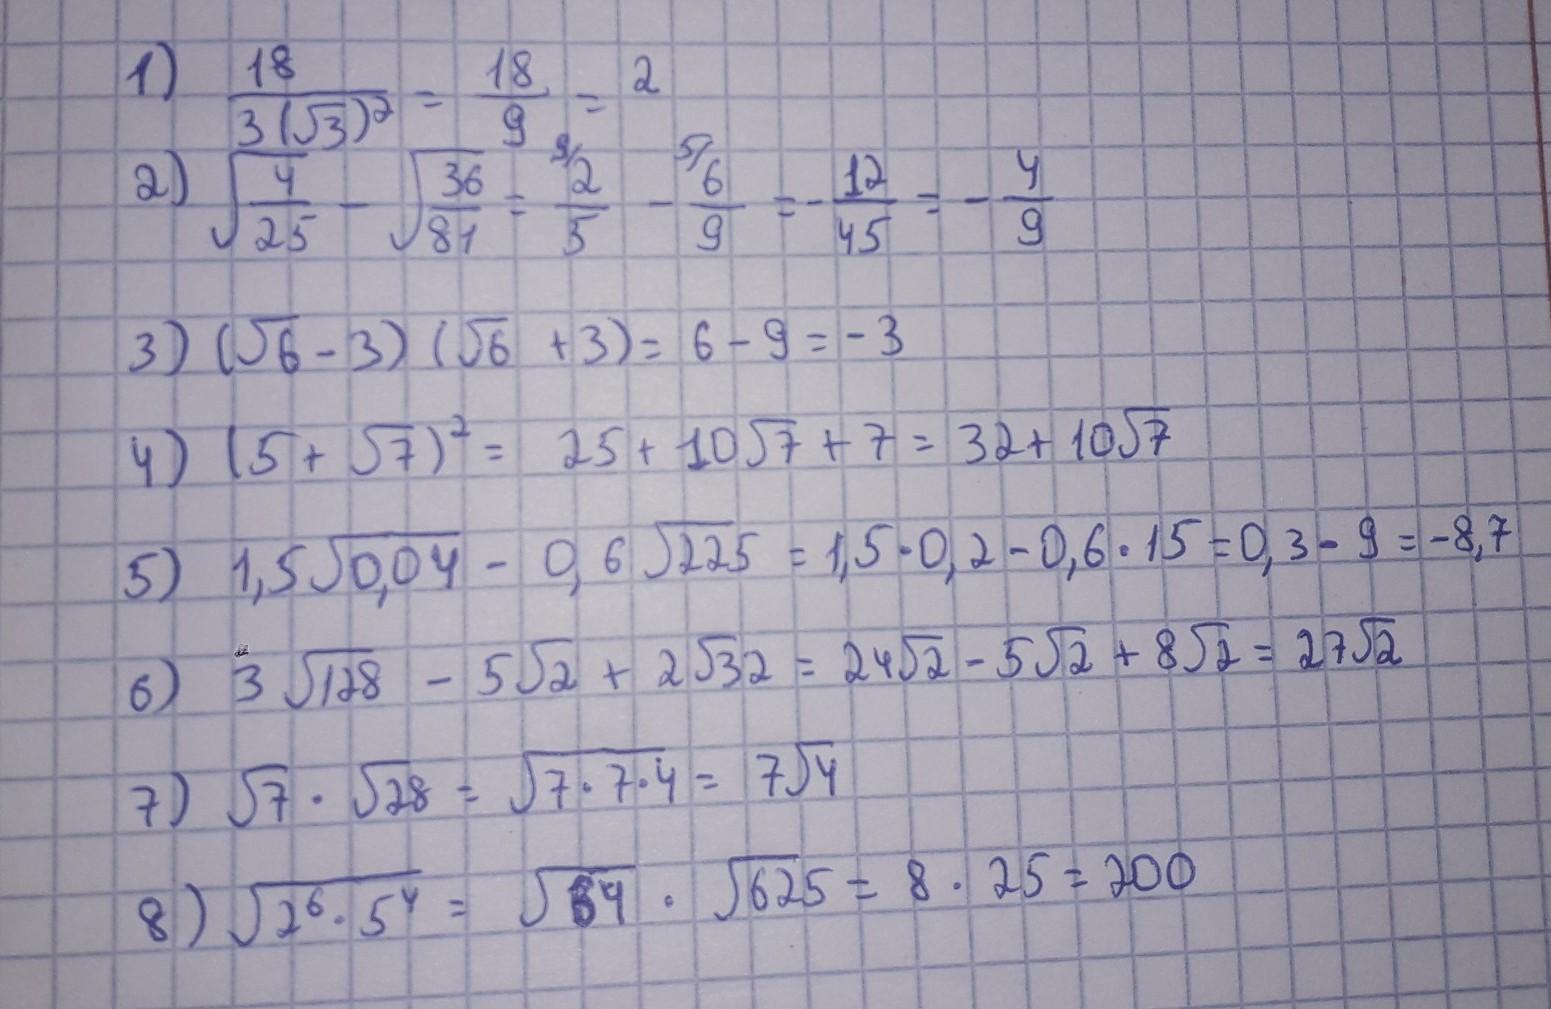 1) 18/(3(√3)²) = 18/9 = 2
2) √(4/25) - √(36/81) = 9/ 2/5 - 5/ 6/9 = - 12/45 = - 4/9
3) (√6 - 3) (√6 + 3) = 6 - 9 = - 3
4) (5 + √7)² = 25 + 10√7 + 7 = 32 + 10√7
5) 1,5√0,04 - 0,6√225 = 1,5·0,2 - 0,6·15 = 0,3 - 9 = -8,7
6) 3√128 - 5√2 + 2√32 = 24√2 - 5√2 + 8√2 = 27√2
7) √7 · √28 = √(7·7·4) = 7√4
8) √(2⁶·5⁴) = √64 · √625 = 8 · 25 = 200